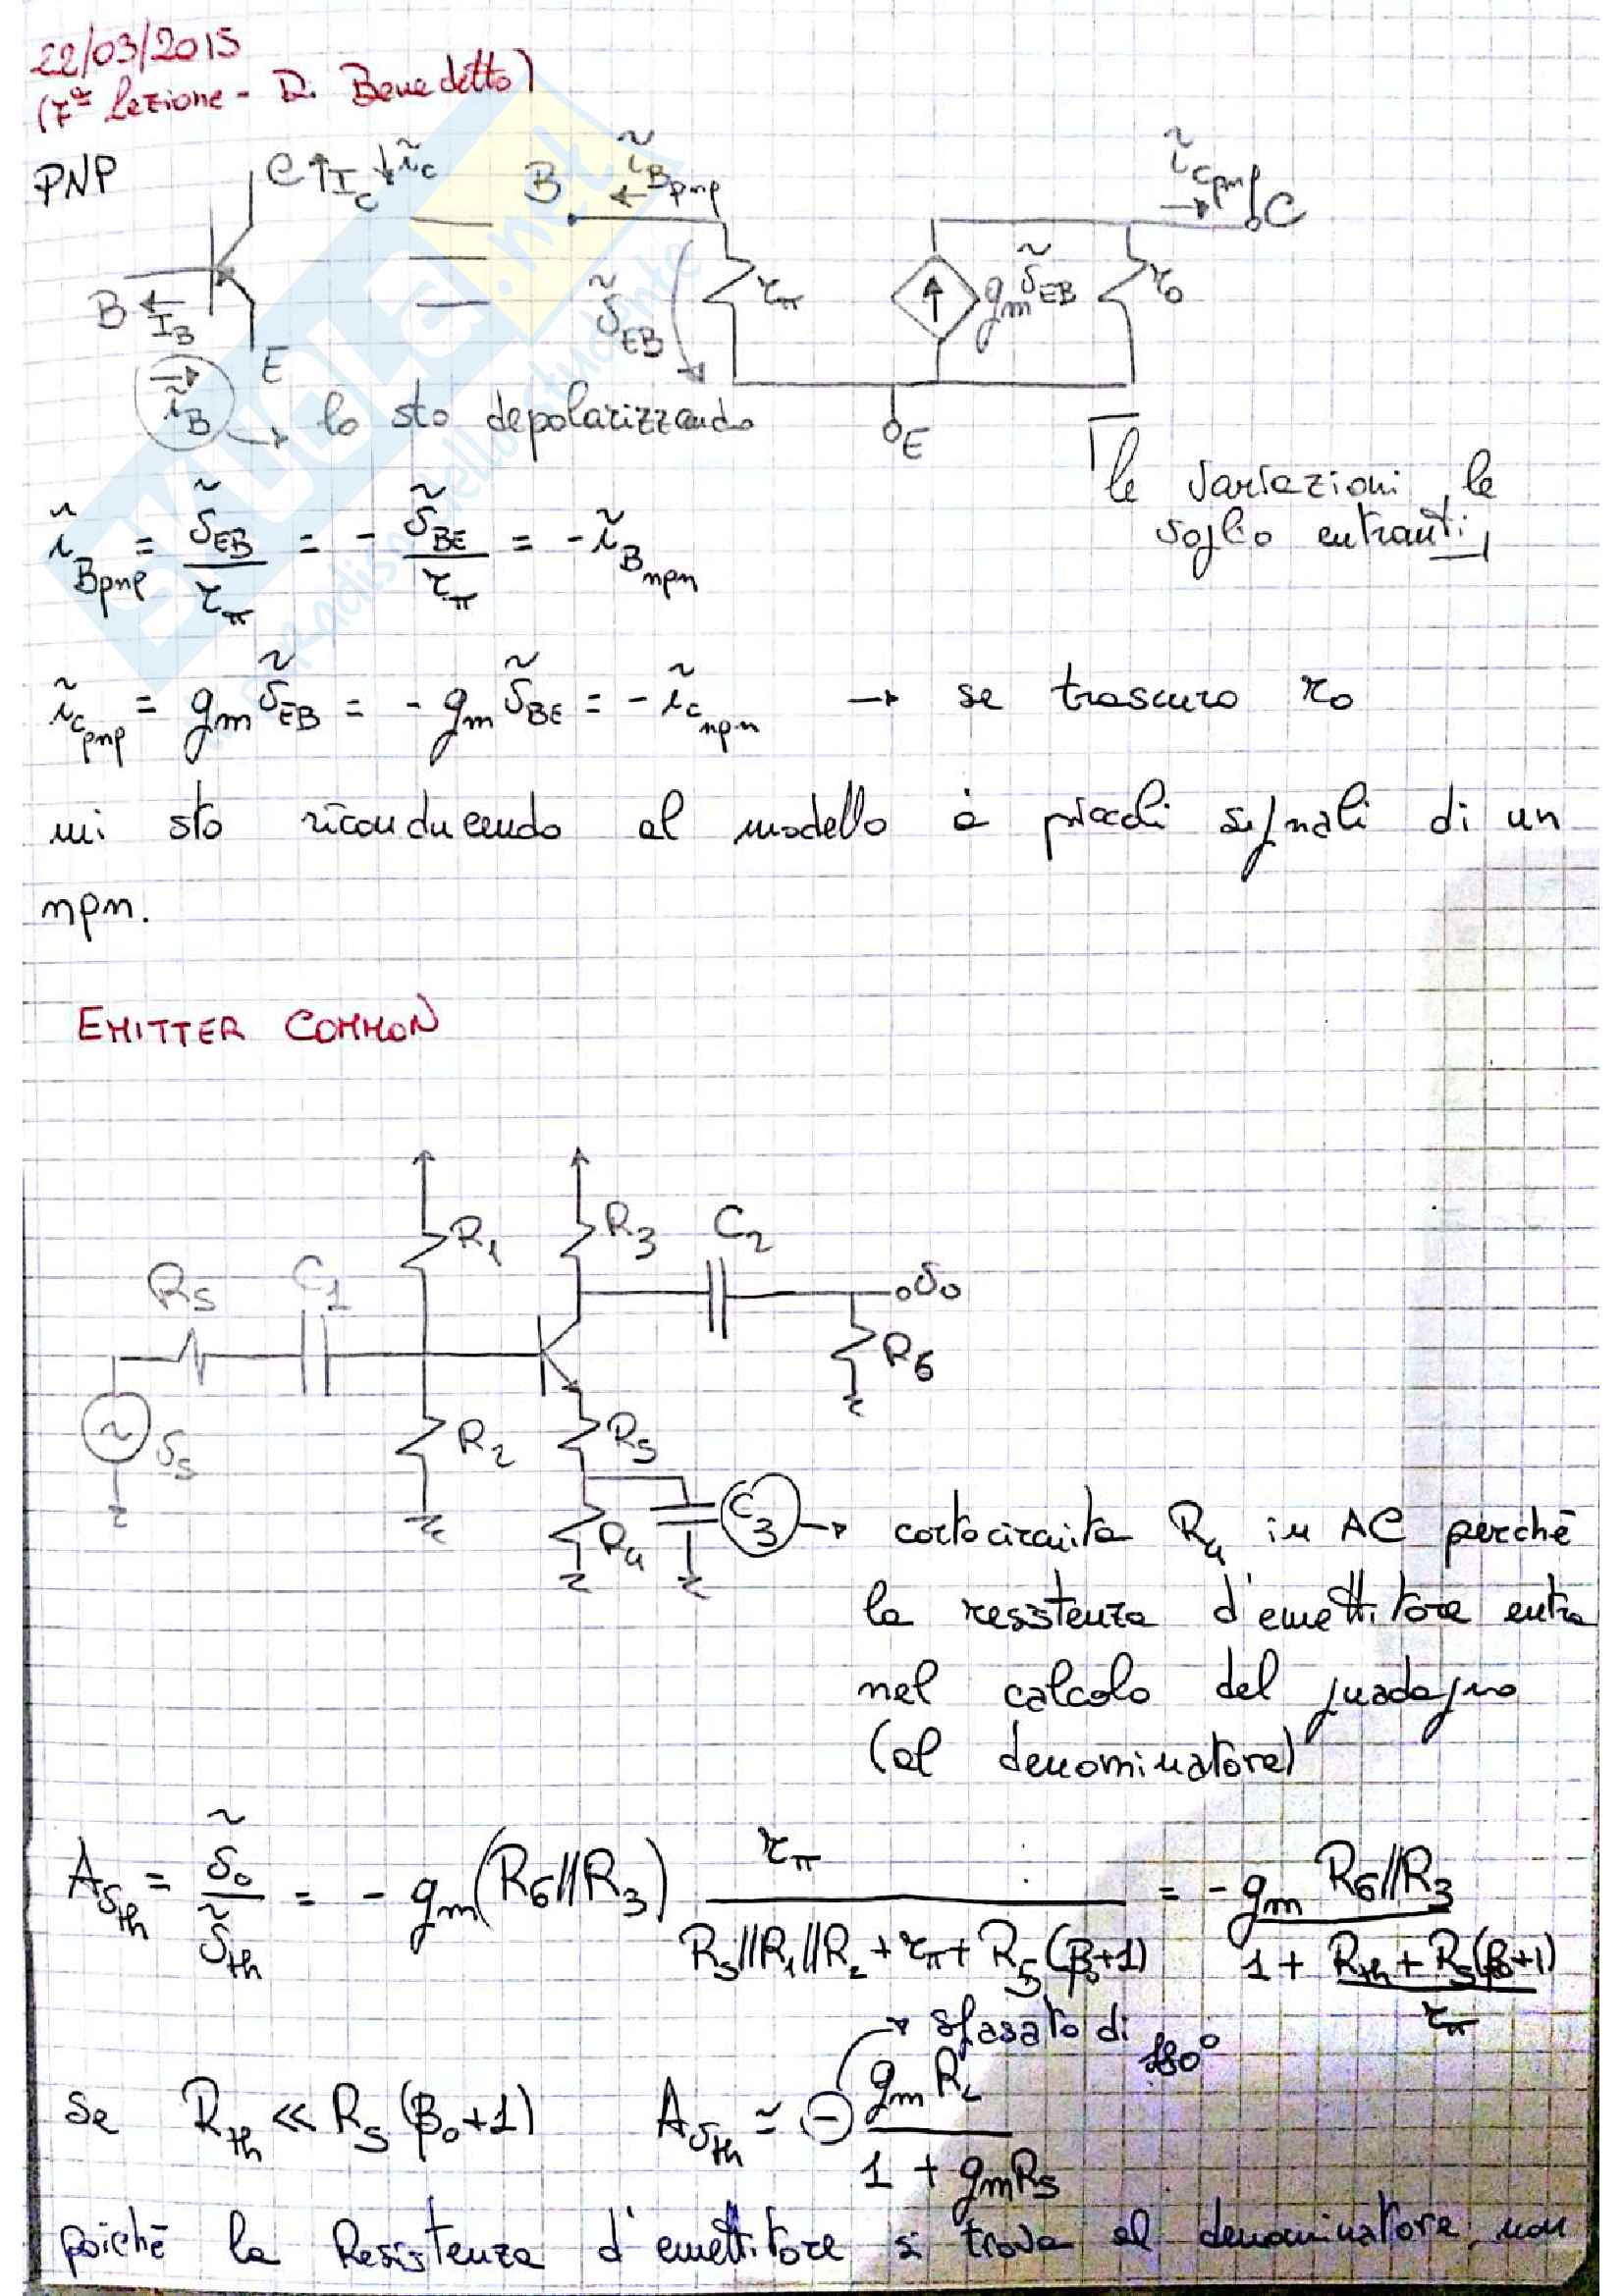 22/03/2015
(7ª lezione - D. Benedetto)
PNP
C ↑I_C ↓ĩ_c
B ← I_B
E
ĩ_B → lo sto depolarizzando
B ĩ_Bpnp
ṽ_EB r_π
g_m ṽ_EB r_o
ĩ_cpnp C
E
le variazioni le
voglio entranti
ĩ_Bpnp = ṽ_EB / r_π = - ṽ_BE / r_π = -ĩ_Bnpn
ĩ_cpnp = g_m ṽ_EB = - g_m ṽ_BE = - ĩ_cnpn → se trascuro r_o
mi sto riconducendo al modello a piccoli segnali di un
npn.
EMITTER COMMON
R_S C_1 R_1 R_3 C_2 v_o
v_s R_2 R_5 R_6
R_4 C_3 → cortocircuita R_4 in AC perchè
la resistenza d'emettitore entra
nel calcolo del guadagno
(al denominatore)
A_vth = ṽ_o / ṽ_th = - g_m (R_6//R_3) r_π / (R_S//R_1//R_2 + r_π + R_5 (β_o+1)) = - g_m R_6//R_3 / (1 + (R_th + R_5(β_o+1)) / r_π)
sfasato di 180°
se R_th << R_5 (β_o+1) A_vth ≃ - g_m R_L / (1 + g_m R_5)
poichè la Resistenza d'emettitore si trova al denominatore, non